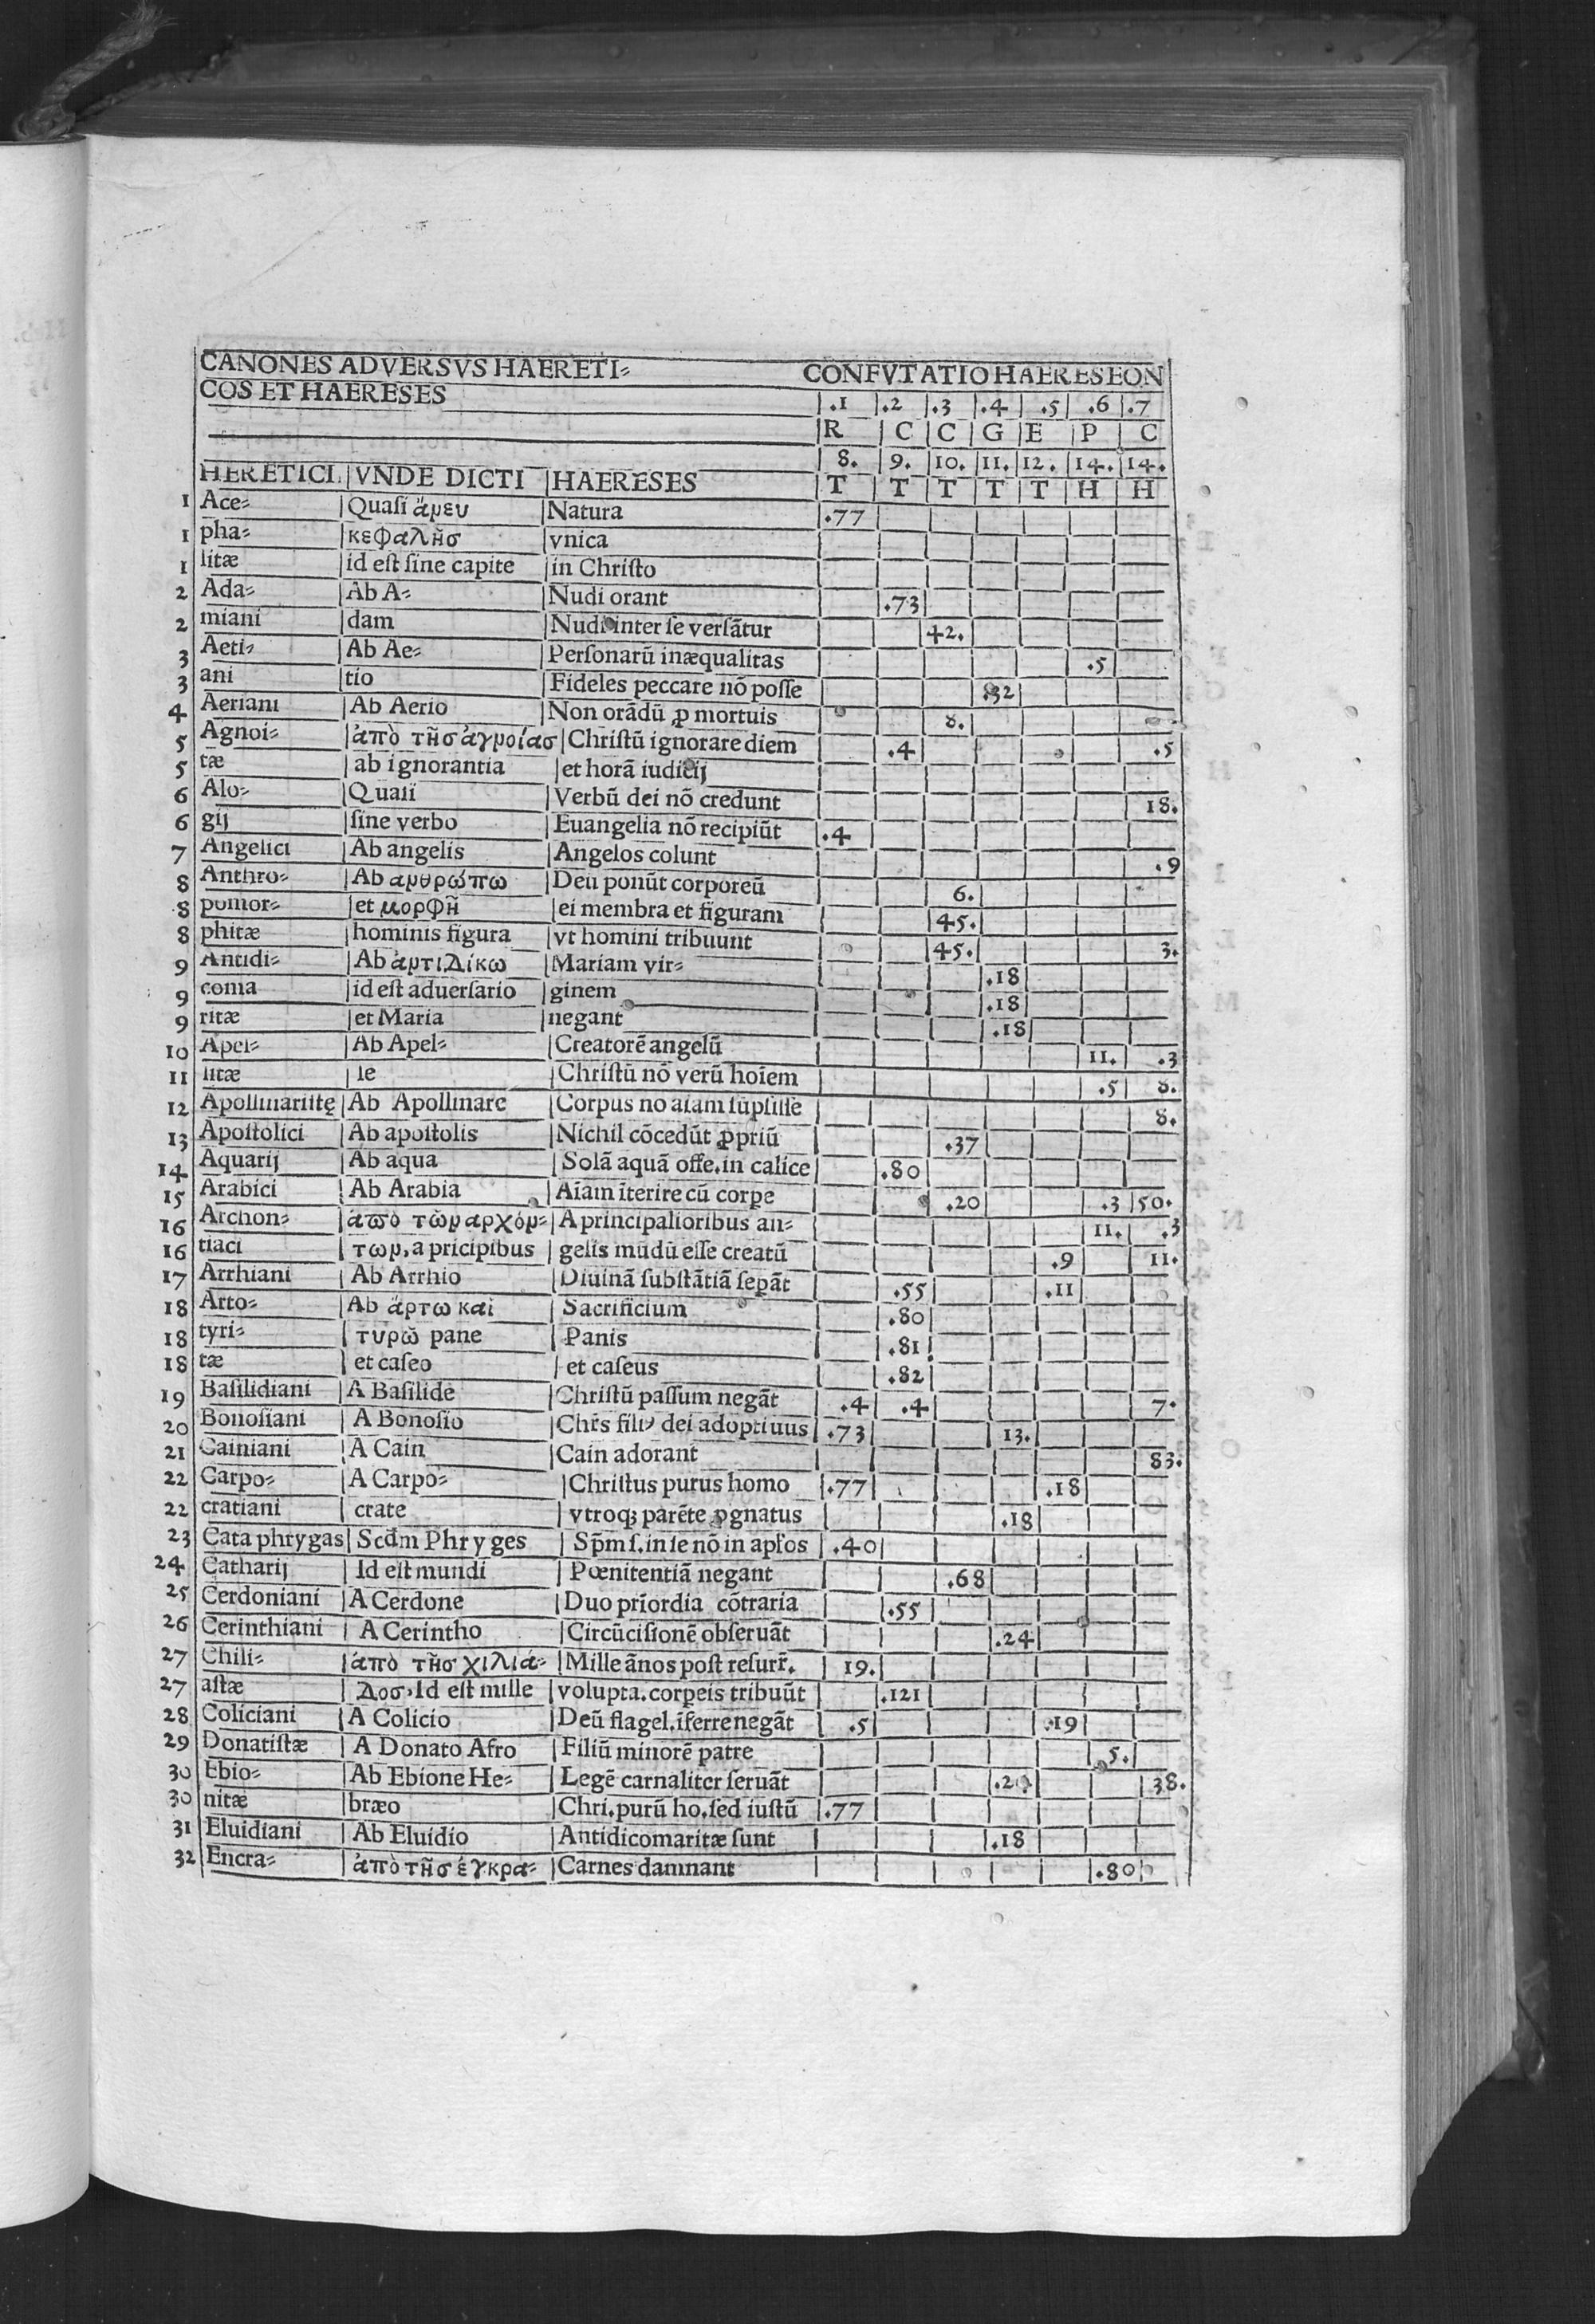 CANONES ADVERSVS HAERETI⸗ CONFVTATIO HAERESEON
COS ET HAERESES .1 .2 .3 .4 .5 .6 .7
R C C G E P C
8. 9. 10. 11. 12. 14. 14.
HERETICI VNDE DICTI HAERESES T T T T T H H
1 Ace⸗ Quaſi ἄμευ Natura .77
1 pha⸗ κεφαλῆσ vnica
1 litæ id eſt ſine capite in Chriſto
2 Ada⸗ Ab A⸗ Nudi orant .73
2 miani dam Nudi inter ſe verſãtur 42.
3 Aeti⸗ Ab Ae⸗ Perſonarũ inæqualitas .5
3 ani tio Fideles peccare nõ poſſe .32
4 Aeriani Ab Aerio Non orãdũ ꝓ mortuis 8.
5 Agnoi⸗ ἀπὸ τῆσ ἀγμοίασ Chriſtũ ignorare diem .4 .5
5 tæ ab ignorantia et horã iudicij
6 Alo⸗ Quaſi Verbũ dei nõ credunt 18.
6 gij ſine verbo Euangelia nõ recipiũt .4
7 Angelici Ab angelis Angelos colunt .9
8 Anthro⸗ Ab αμθρώπω Deũ ponũt corporeũ 6.
8 pomor⸗ et μορφῆ ei membra et figuram 45.
8 phitæ hominis figura vt homini tribuunt 45. 3.
9 Antidi⸗ Ab ἀμτιδίκω Mariam vir⸗ .18
9 coma id eſt aduerſario ginem .18
9 ritæ et Maria negant .18
10 Apel⸗ Ab Apel⸗ Creatorẽ angelũ 11. .3
11 litæ le Chriſtũ nõ verũ hoĩem .5 8.
12 Apollinariſtę Ab Apollinare Corpus nõ aĩam ſũpſiſſe 8.
13 Apoſtolici Ab apoſtolis Nichil cõcedũt ꝓpriũ .37
14 Aquarij Ab aqua Solã aquã offe. in calice .80
15 Arabici Ab Arabia Aĩam ĩterire cũ corpe .20 .3 50.
16 Archon⸗ ἀπὸ τῶμ αρχόμ⸗ A principalioribus an⸗ 11. .3
16 tiaci τωμ. a pricipibus gelis mũdũ eſſe creatũ .9 11.
17 Arrhiani Ab Arrhio Diuinã ſubſtãtiã ſepãt .55 .11
18 Arto⸗ Ab ἄρτω καὶ Sacrificium .80
18 tyri⸗ τυρῶ pane Panis .81
18 tæ et caſeo et caſeus .82
19 Baſilidiani A Baſilide Chriſtũ paſſum negãt .4 .4 7.
20 Bonoſiani A Bonoſio Chr̃s filiꝰ dei adoptiuus .73 13.
21 Cainiani A Cain Cain adorant 83.
22 Carpo⸗ A Carpo⸗ Chriſtus purus homo .77 .18
22 cratiani crate vtroqꝫ parẽte ꝓgnatus .18
23 Cata phrygas Scd̃m Phryges Sp̃m ſ. in ſe nõ in apl̃os .40
24 Catharij Id eſt mundi Pœnitentiã negant .68
25 Cerdoniani A Cerdone Duo prĩordia cõtraria .55
26 Cerinthiani A Cerintho Circũciſionẽ obſeruãt .24
27 Chili⸗ ἀπὸ τῆσ χιλιά⸗ Mille ãnos poſt reſurr̃. 19.
27 aſtæ δοσ. Id eſt mille volupta. corpeis tribuũt .121
28 Coliciani A Colicio Deũ flagel. ĩferre negãt .5 .19
29 Donatiſtæ A Donato Afro Filiũ minorẽ patre 5.
30 Ebio⸗ Ab Ebione He⸗ Legẽ carnaliter ſeruãt 38.
30 nitæ bræo Chri. purũ ho. ſed iuſtũ .77
31 Eluidiani Ab Eluidio Antidicomaritæ ſunt .18
32 Encra⸗ ἀπὸ τῆσ ἐγκρα⸗ Carnes damnant .80